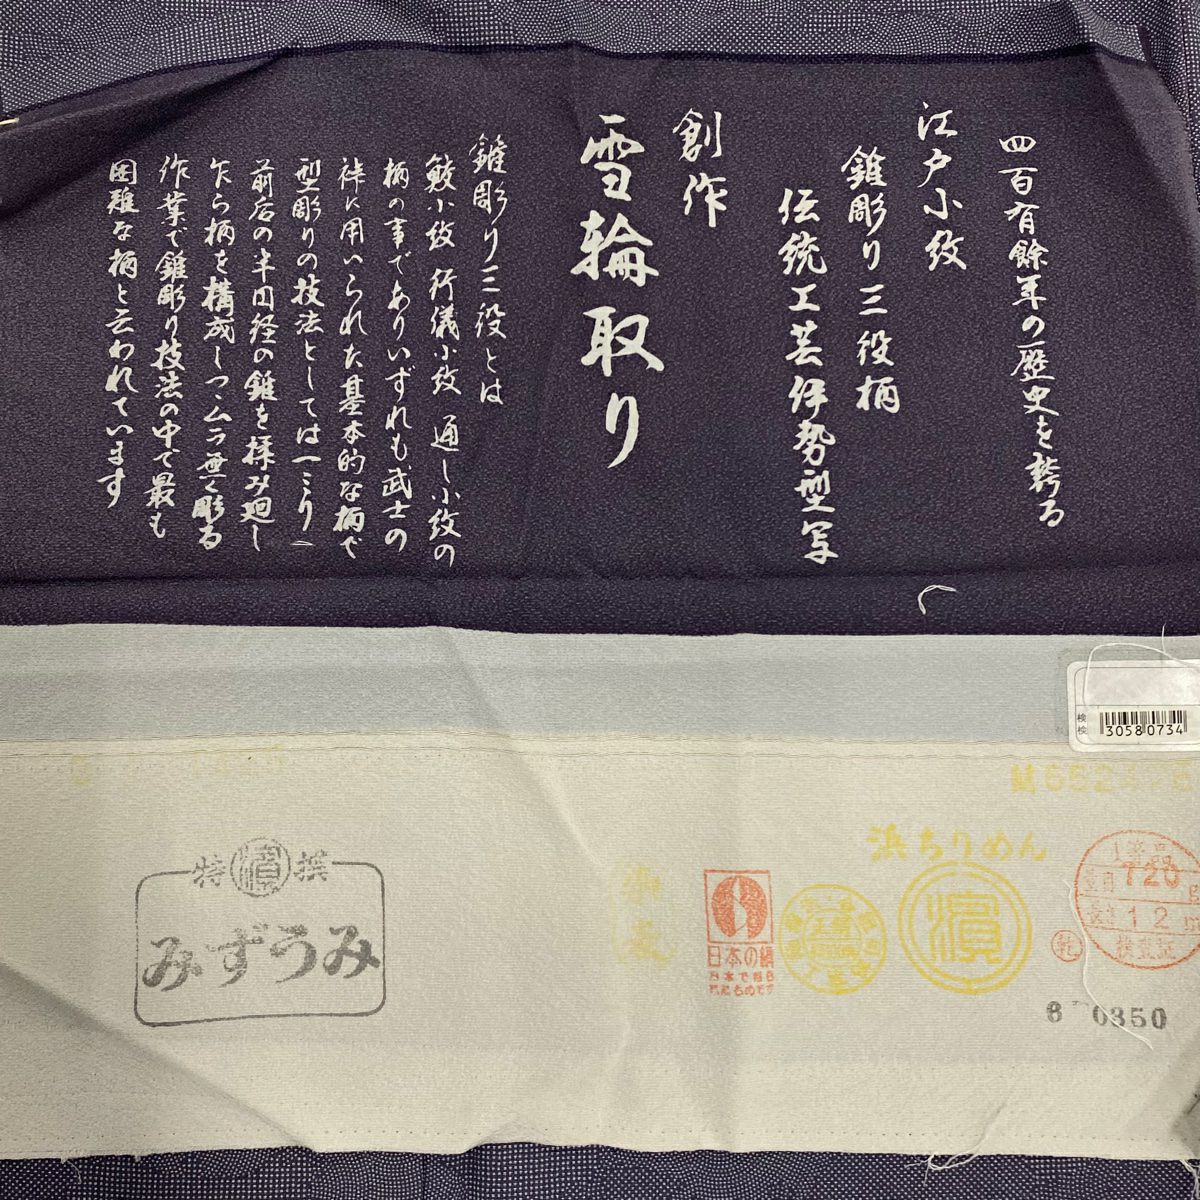 四百有餘年の歴史を誇る
江戸小紋
錐彫り三役柄
伝統工芸伊勢型写
創作
雪輪取り
錐彫り三役とは
鮫小紋 行儀小紋 通し小紋の
柄の事でありいずれも武士の
裃に用いられた基本的な柄で
型彫りの技法としては一ミリ
前后の半円径の錐を揉み廻し
乍ら柄を構成しつゝムラ無く彫る
作業で錐彫り技法の中で最も
困難な柄と云われています
検
検
30580734
浜ちりめん
特 濱 撰
みずうみ
日本の絹
濱
1等品
720
12
検査証
0350